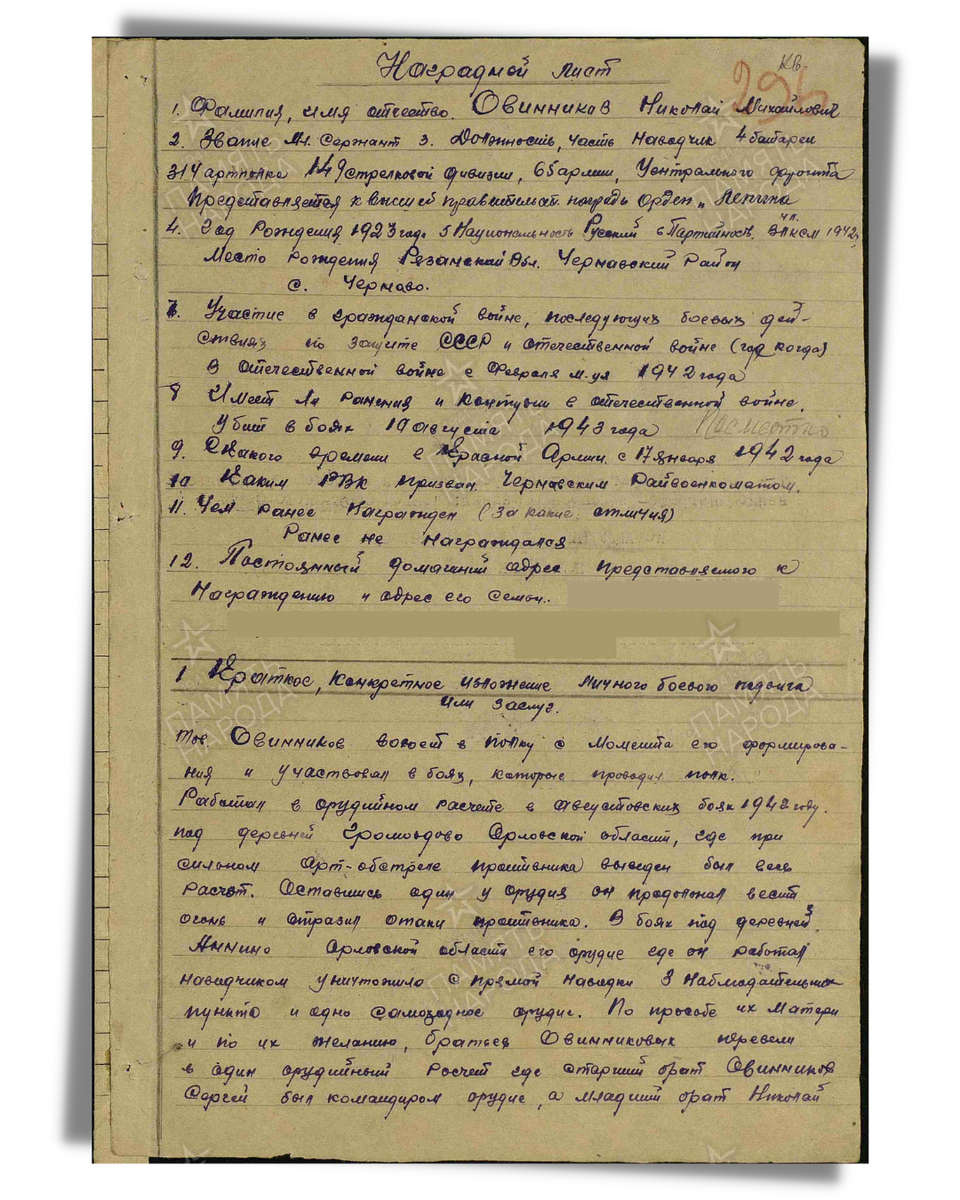 Наградной лист
кв
293
1. Фамилия, имя отчество. Овинников Николай Михайлович
2. Звание Мл. Сержант 3. Должность, часть наводчик 4 батареи
314 артполка 149 стрелковой дивизии, 65 армии, Центрального фронта
Представляется к высшей правительст. награды Орден „Ленина
4. Год Рождения 1923 года 5 Национальность Русский 6 Партийность ВЛКСМ 1942
Место рождения Рязанской Обл. Чернавский Район
с. Чернаво.
7. Участие в гражданской войне, последующих боевых дей-
ствиях по защите СССР и отечественной войне (год когда)
В отечественной войне с Февраля м-ца 1942 года
8 Имеет ли ранения и контузии в отечественной войне.
Убит в боях 19 августа 1943 года Посмертно
9. С какого времени в Красной Армии с 17 января 1942 года
10 Каким РВК призван. Чернавским Райвоенкоматом.
11. Чем ранее награжден (за какие отличия)
Ранее не награждался
12. Постоянный домашний адрес представляемого к
Награждению и адрес его семьи.
1 Краткое, конкретное изложение личного боевого подвига
или заслуг.
Тов. Овинников воюет в полку с момента его формирова-
ния и участвовал в боях, которые проводил полк.
Работал в орудийном расчете в августовских боях 1942 году.
под деревней Орловской области, где при
сильном арт-обстреле противника выведен был весь
расчет. Оставшись один у орудия он продолжал вести
огонь и отразил атаки противника. В боях под деревней
Аннино Орловской области его орудие где он работал
наводчиком уничтожило с прямой наводки 3 наблюдательных
пункта и одно самоходное орудие. По прозьбе их матери
и по их желанию, братьев Овинниковых перевели
в один орудийный расчет где старший брат Овинников
Сергей был командиром орудие, а младший брат Николай